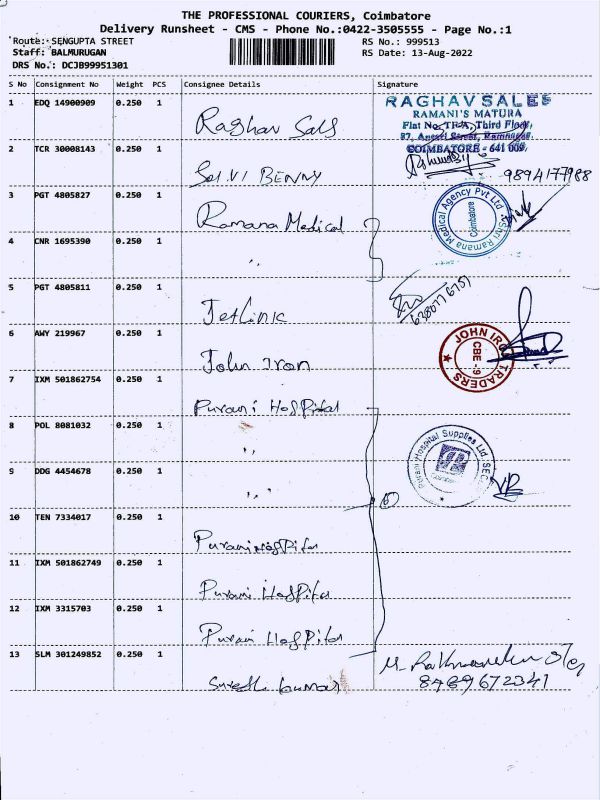 THE PROFESSIONAL COURIERS, Coimbatore
Delivery Runsheet - CMS - Phone No.:0422-3505555 - Page No.:1
Route: SENGUPTA STREET RS No.: 999513
Staff: BALMURUGAN RS Date: 13-Aug-2022
DRS No.: DCJB99951301
S No Consignment No Weight PCS Consignee Details Signature
1 EDQ 14900909 0.250 1 Raghav Sals
RAGHAV SALES
RAMANI'S MATURA
Third Floor,
COIMBATORE - 641 009.
2 TCR 30008143 0.250 1 Selvi Benny
9894177988
3 PGT 4805827 0.250 1 Ramana Medical
Shri Ramana Medical Agency Pvt Ltd
Coimbatore
4 CNR 1695390 0.250 1 "
5 PGT 4805811 0.250 1 Jetlinic
6 AWY 219967 0.250 1 John Iron
JOHN IRON TRADERS
CBE - 9
7 IXM 501862754 0.250 1 Purani Hospital
8 POL 8081032 0.250 1 "
Purani Hospital Supplies Ltd.
9 DDG 4454678 0.250 1 " "
10 TEN 7334017 0.250 1 Purani Hospital
11 IXM 501862749 0.250 1 Purani Hospital
12 IXM 3315703 0.250 1 Purani Hospital
13 SLM 301249852 0.250 1 Suresh kumar
8489672341